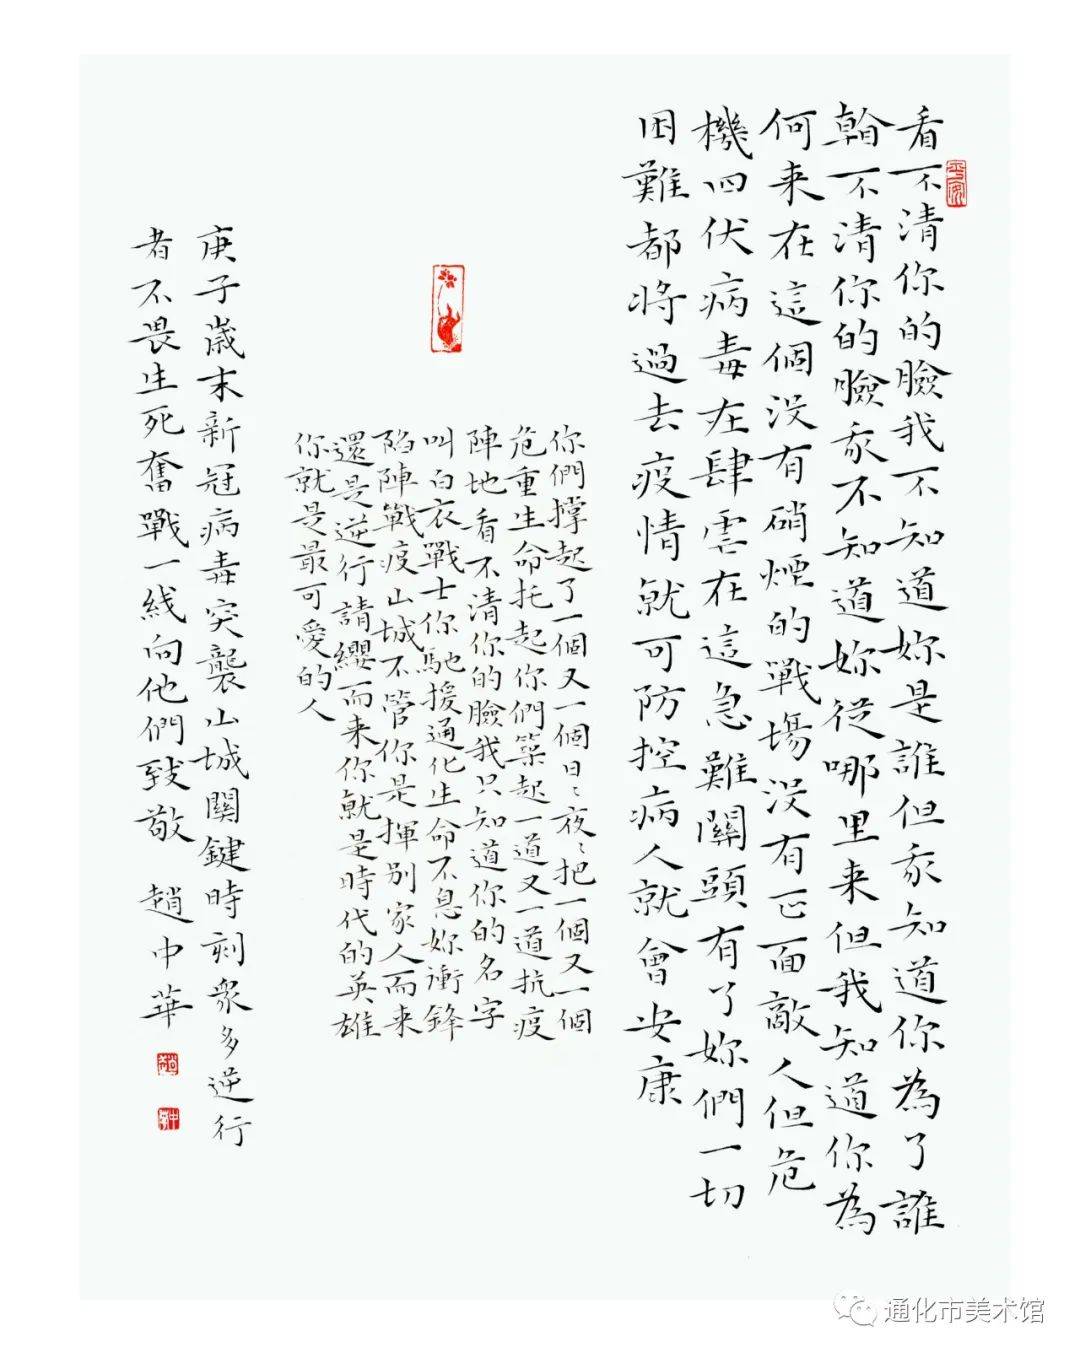 看不清你的臉我不知道妳是誰但我知道你為了誰
看不清你的臉我不知道妳從哪里来但我知道你為
何来在這個没有硝煙的戰場没有正面敵人但危
機四伏病毒在肆虐在這急難關頭有了妳們一切
困難都將過去疫情就可防控病人就會安康
你們撑起了一個又一個日〻夜〻把一個又一個
危重生命托起你們築起一道又一道抗疫
陣地看不清你的臉我只知道你的名字
叫白衣戰士你馳援通化生命不息妳衝鋒
陷陣戰疫山城不管你是揮别家人而来
還是逆行請纓而来你就是時代的英雄
你就是最可愛的人
庚子歲末新冠病毒突襲山城關鍵時刻衆多逆行
者不畏生死奮戰一线向他們致敬 趙中華
通化市美术馆